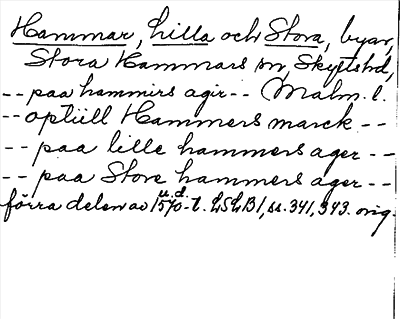 Hammar, Lilla och Stora, byar,
Stora Hammars sn, Skytts hd,
-- paa hammirs agir -- Malm. l.
-- optiill Hammers marck --
-- paa lille hammers ager --
-- paa Store hammers ager --
u. d.
förra delen av 1570-t. LSLB1, ss. 341, 343. orig.